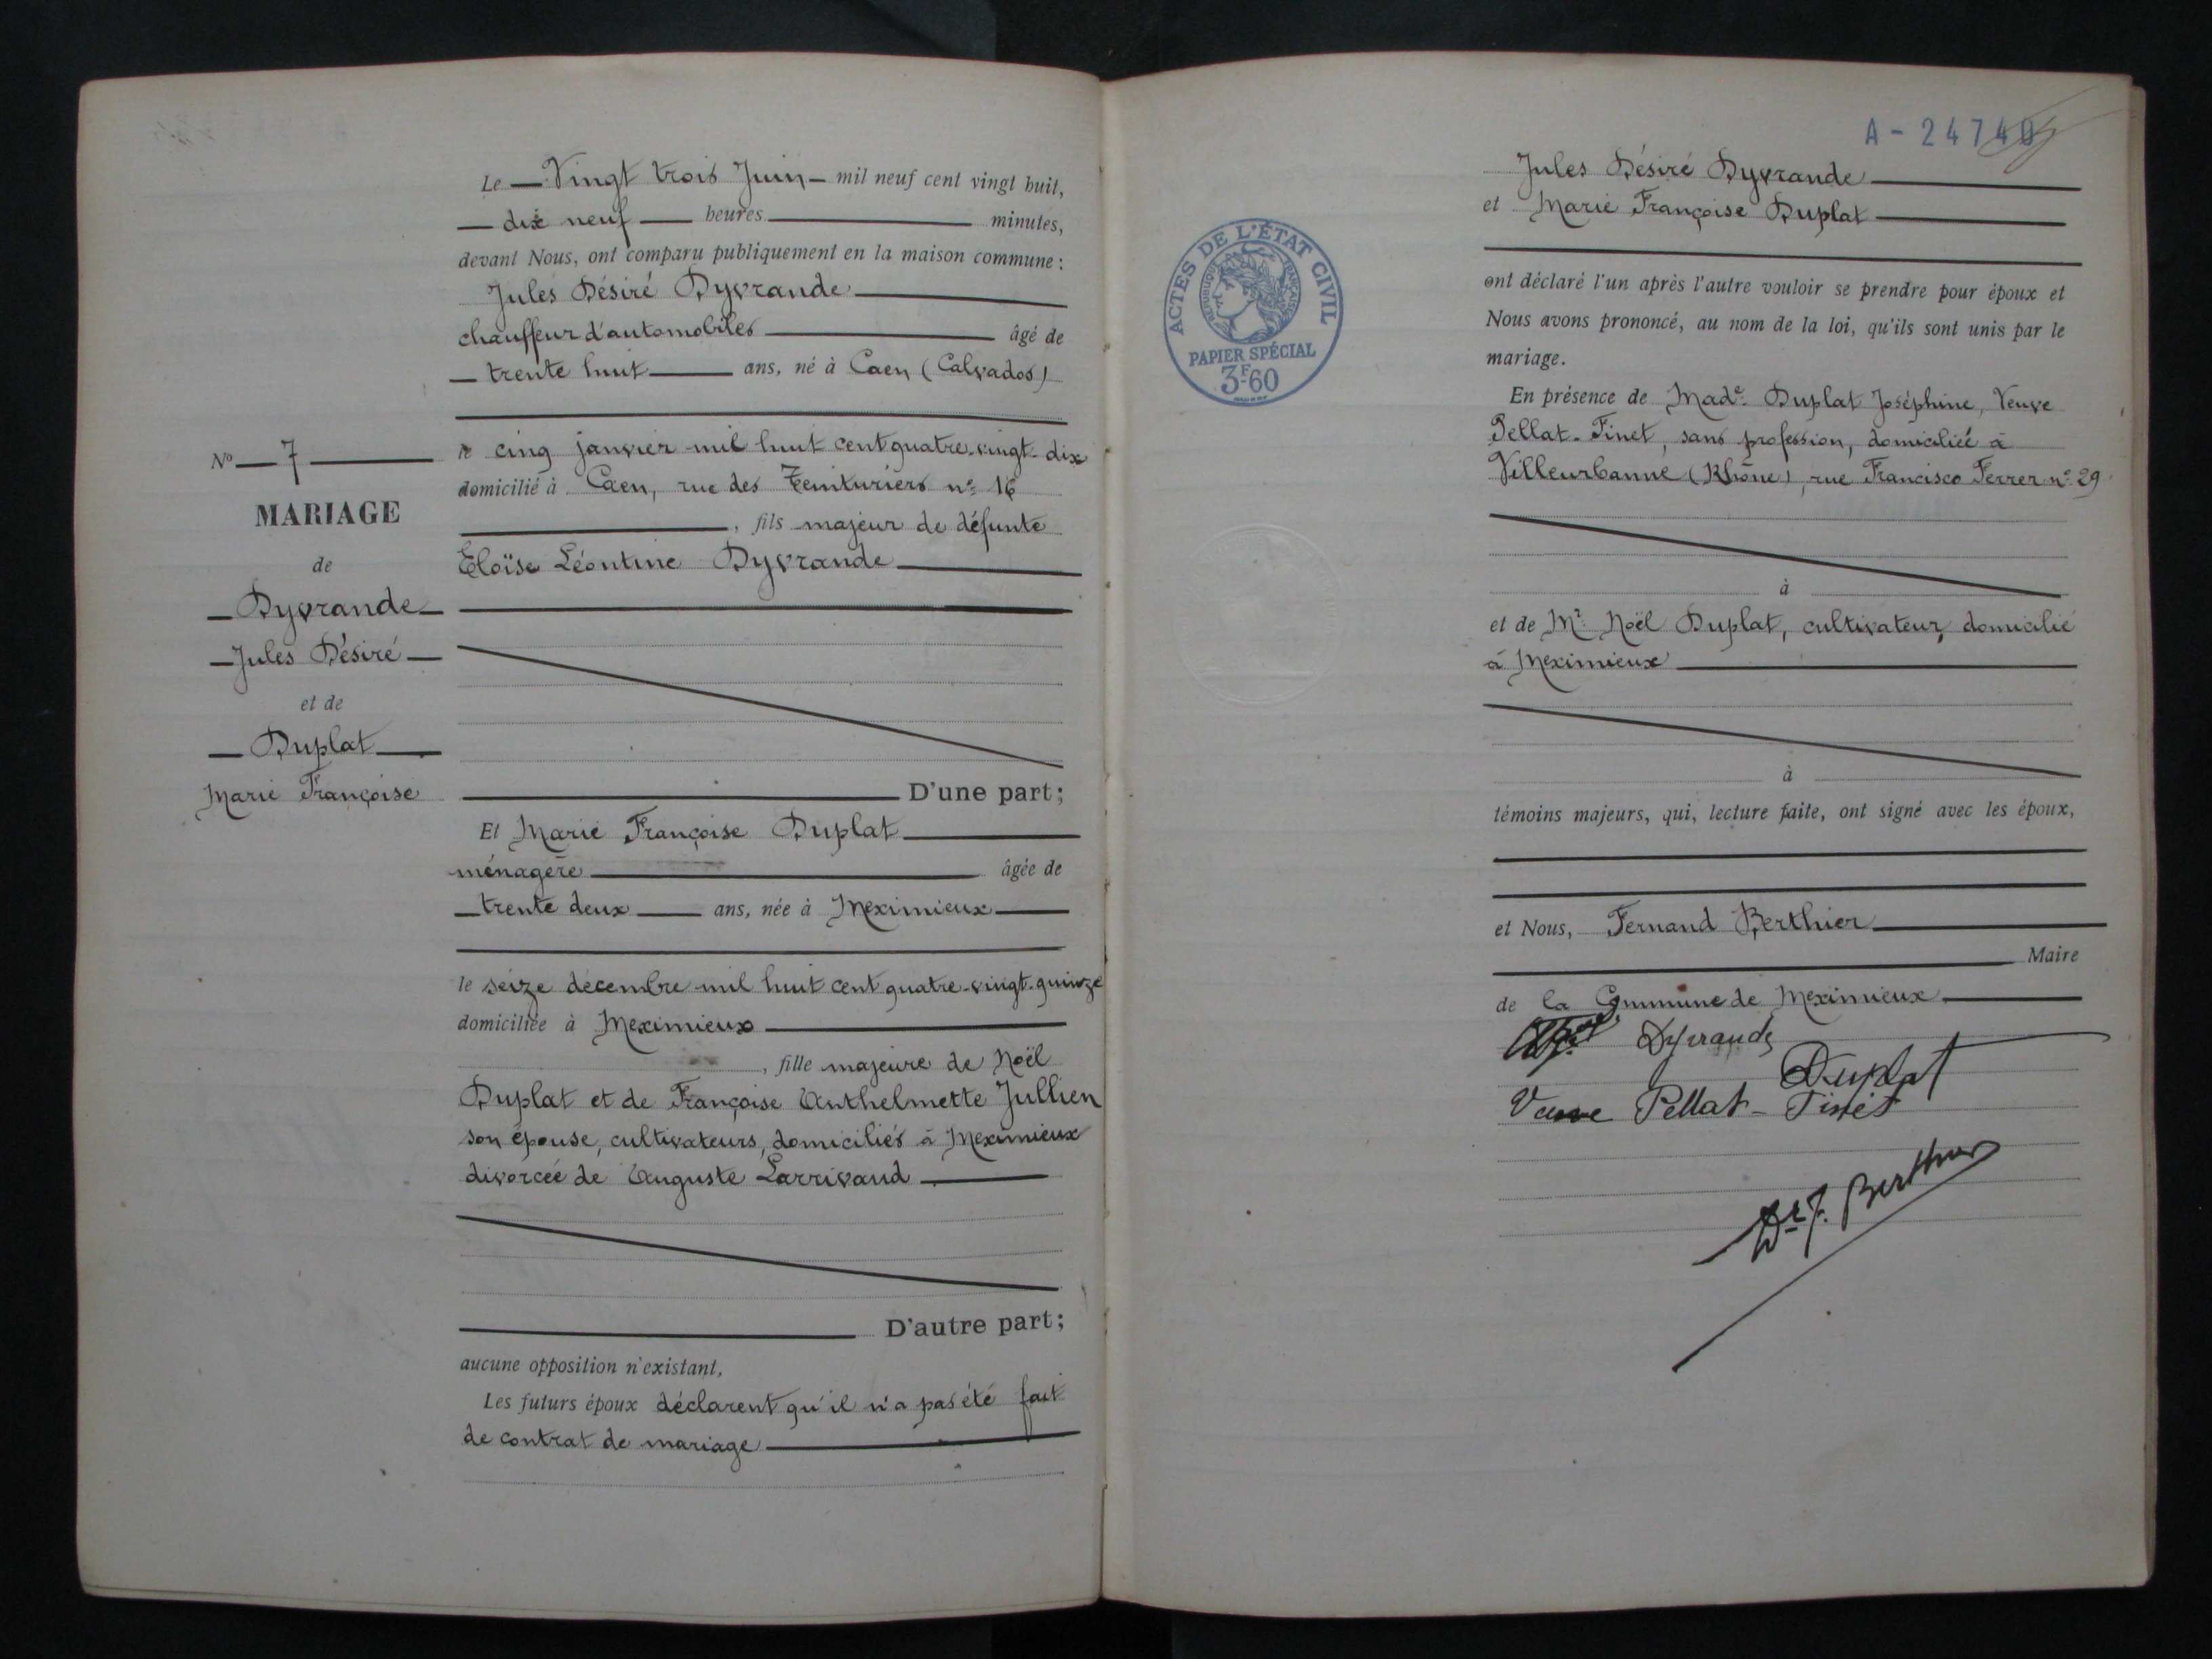 Le Vingt trois Juin mil neuf cent vingt huit,
dix neuf heures minutes,
devant Nous, ont comparu publiquement en la maison commune :
Jules Désiré Dyvrande
chauffeur d'automobiles âgé de
trente huit ans, né à Caen (Calvados)
le cinq janvier mil huit cent quatre-vingt-dix
domicilié à Caen, rue des Teinturiers n° 16
, fils majeur de défunte
Eloïse Léontine Dyvrande
D'une part;
Et Marie Françoise Duplat
ménagère âgée de
trente deux ans, née à Meximieux
le seize décembre mil huit cent quatre-vingt-quinze
domiciliée à Meximieux
, fille majeure de Noël
Duplat et de Françoise Anthelmette Jullien
son épouse, cultivateurs, domiciliés à Meximieux
divorcée de Auguste Larrivaud
D'autre part;
aucune opposition n'existant,
Les futurs époux déclarent qu'il n'a pas été fait
de contrat de mariage
N° 7
MARIAGE
de
Dyvrande
Jules Désiré
et de
Duplat
Marie Françoise
A - 24740
ACTES DE L'ÉTAT CIVIL
RÉPUBLIQUE FRANÇAISE
PAPIER SPÉCIAL
3F60
Jules Désiré Dyvrande
et Marie Françoise Duplat
ont déclaré l'un après l'autre vouloir se prendre pour époux et
Nous avons prononcé, au nom de la loi, qu'ils sont unis par le
mariage.
En présence de Made Duplat Joséphine, Veuve
Pellat-Finet, sans profession, domiciliée à
Villeurbanne (Rhône), rue Francisco Ferrer n° 29
à
et de Mr Noël Duplat, cultivateur, domicilié
à Meximieux
à
témoins majeurs, qui, lecture faite, ont signé avec les époux,
et Nous, Fernand Berthier
Maire
de la Commune de Meximieux
Dyvrande
Duplat
Veuve Pellat-Finet
Dr F. Berthier